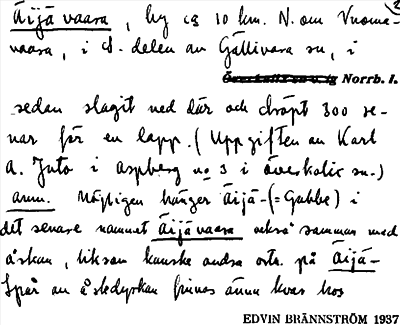 Äijävaara, by ca 10 km. N. om Vuoma-
vaara, i S. delen av Gällivara sn, i
Norrb. l.
sedan slagit ned där och dräpt 300 re-
nar för en lapp. (Uppgiften av Karl
A. Juto i Aspberg no 3 i Överkalix sn.)
Anm. Möjligen hänger Äijä- (= Gubbe) i
det senare namnet Äijävaara också samman med
åskan, liksom kanske andra ortn. på Äijä-
Spår av åskdyrkan finnas ännu kvar hos
EDVIN BRÄNNSTRÖM 1937